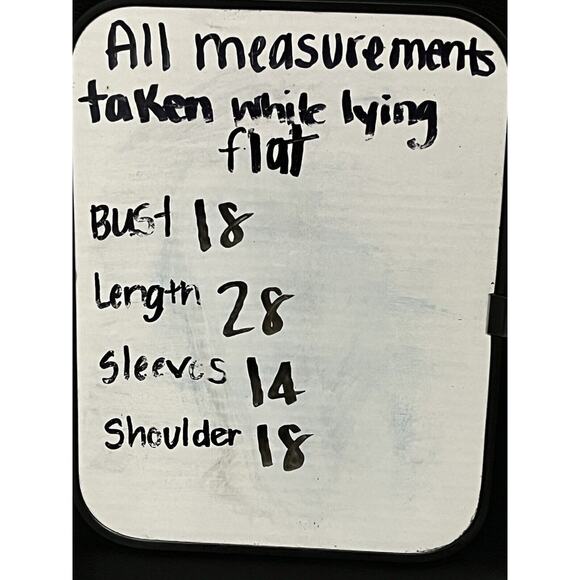 All measurements
taken while lying
flat
Bust 18
Length 28
Sleeves 14
Shoulder 18